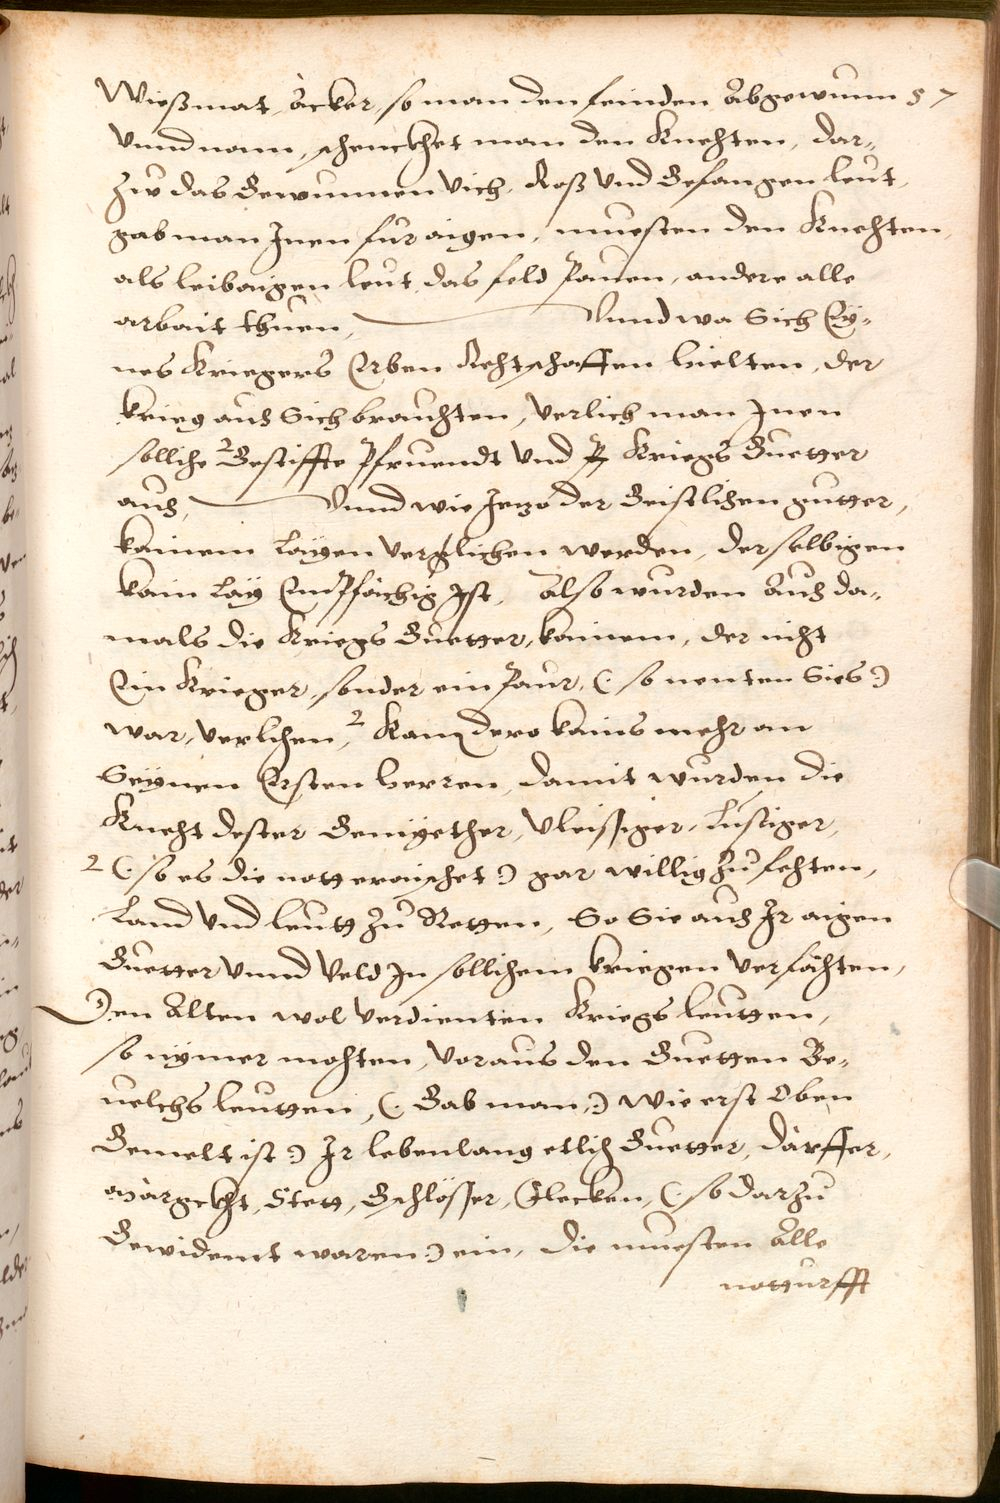 Wießmat, äcker, so man den feinden Abgewunn 57
vnnd nam, schenckhet man den Knechten, dar-
Zw das Gewunnen Vich, Roß Vnd Gefangen leut,
gab man Inen für aigen, muesten den Knechten,
als leibaigen leut, das feld Pauen, andere alle
arbait thuen, Vnnd wa Sich Ey-
nes Kriegers Erben Rechtschaffen hielten, der
krieg auch Sich brauchten, Verlich man Inen
solliche Gestiffte Pfruendt Vnd Kriegs Guetter
auch, Vnnd wie Jezo der Geistlichen gutter,
kainem Layen Verglichen werden, der selbigen
kain Lay Empfächig Ist, Also wurden Auch da-
mals die Kriegs Guetter, kainem, der nicht
Ein Krieger, sonder ein Paur, (: so nenten Sies :)
war, Verlihen, 2 Kam dero kains mehr an
Seynen Ersten herren, damit wurden die
Knecht dester Gemüether, Vleissiger, Lustiger,
2 (: so es die nott eraischet :) gar willig Zu fechten,
Land Vnd leutt Zu Retten, So Sie auch Ir aigen
Guetter Vnnd Veld In sollichem kriegen Verfächten,
Den Alten wol Verdienten Kriegs leutten,
so nymer mochten, Voraus den Guetten Be-
uelchs leutten, (: Gab man,:) wie erst Oben
Gemelt ist :) Ir lebenlang etlich Guetter, därffer,
märgckht, Stett, Gschlösser, Flecken, (: so darzu
Gewidemt waren :) ein, die muesten Alle
notturfft